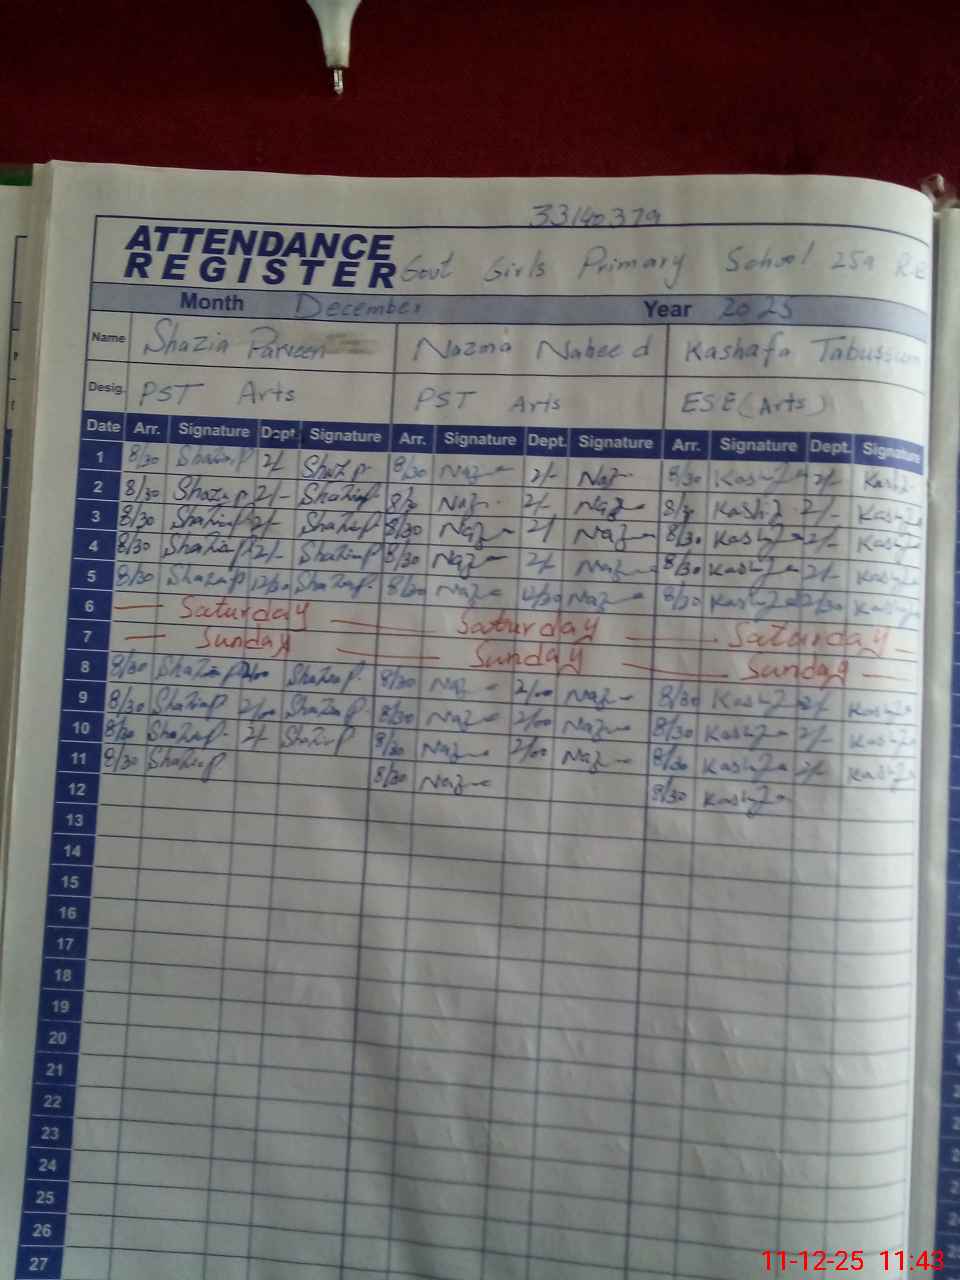 33140379
ATTENDANCE
REGISTER Govt Girls Primary School 259 R.B
Month December Year 2025
Name Shazia Parveen Nazma Naheed Kashafa Tabussum
Desig. PST Arts PST Arts ESE (Arts)
Date Arr. Signature Dept. Signature Arr. Signature Dept. Signature Arr. Signature Dept. Signature
1 8/30 Shazia P 2/- Shaz P 8/30 Naz 2/- Naz 8/30 Kash 2/- Kash
2 8/30 Shazia P 2/- Shazia P 8/30 Naz 2/- Naz 8/30 Kash 2/- Kash
3 8/30 Shazia P 2/- Shazia P 8/30 Naz 2/- Naz 8/30 Kash 2/- Kash
4 8/30 Shazia P 2/- Shazia P 8/30 Naz 2/- Naz 8/30 Kash 2/- Kash
5 8/30 Shazia P 12/30 Shazia P 8/30 Naz 12/30 Naz 8/30 Kash 12/30 Kash
6 Saturday Saturday Saturday
7 Sunday Sunday Sunday
8 8/30 Shazia P 2/00 Shazia P 8/30 Naz 2/00 Naz 8/30 Kash 2/- Kash
9 8/30 Shazia P 2/00 Shazia P 8/30 Naz 2/00 Naz 8/30 Kash 2/- Kash
10 8/30 Shazia P 2/- Shazia P 8/30 Naz 2/00 Naz 8/30 Kash 2/- Kash
11 8/30 Shazia P 8/30 Naz 8/30 Kash
12
13
14
15
16
17
18
19
20
21
22
23
24
25
26
27
11-12-25 11:43